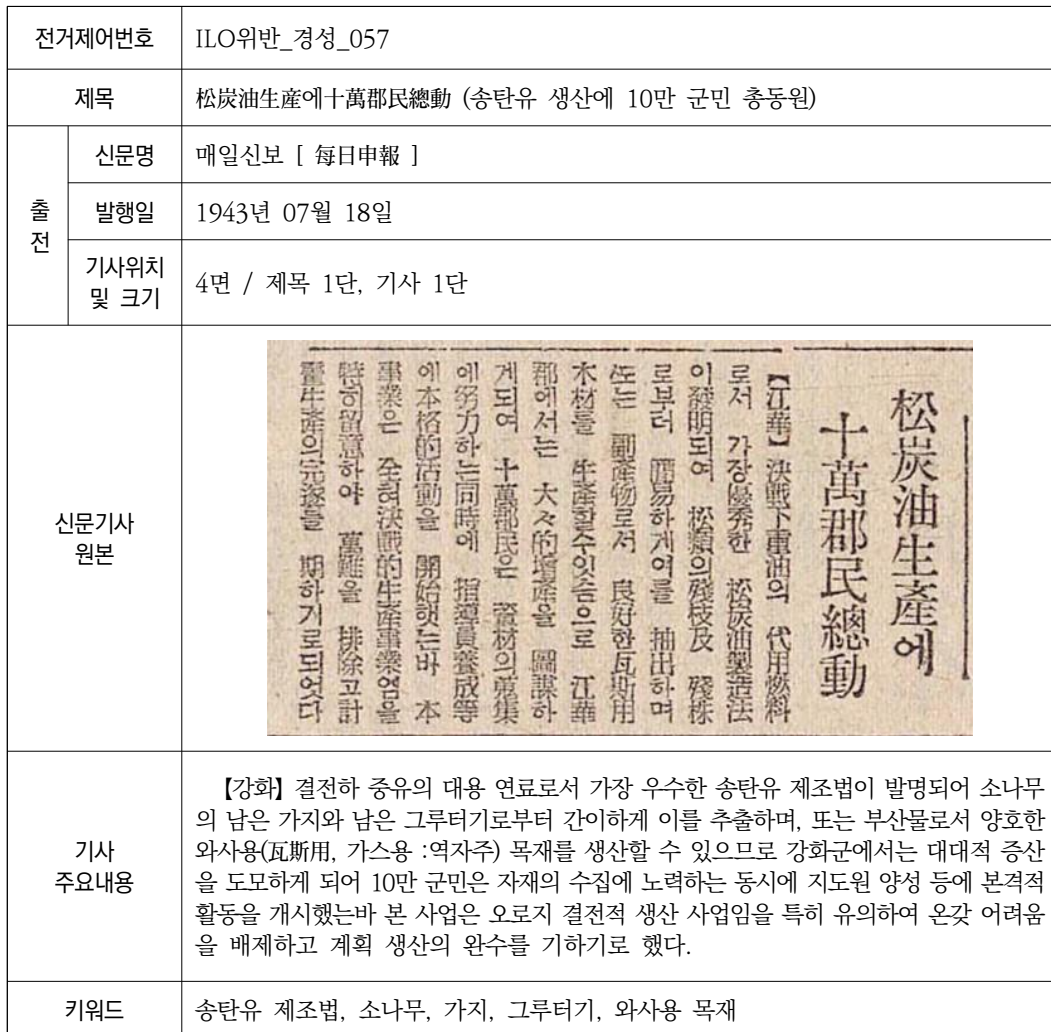 전거제어번호
ILO위반_경성_057
제목
松炭油生産에十萬郡民總動 (송탄유 생산에 10만 군민 총동원)
출전
신문명
매일신보 [ 每日申報 ]
발행일
1943년 07월 18일
기사위치
및 크기
4면 / 제목 1단, 기사 1단
신문기사
원본
松炭油生產에
十萬郡民總動
【江華】決戰下重油의 代用燃料
로서 가장優秀한 松炭油製造法
이發明되여 松類의殘枝及 殘株
로부터 簡易하게여를 抽出하며
또는 副產物로서 良好한瓦斯用
木材를 生產할수잇슴으로 江華
郡에서는 大々的增產을 圖謀하
게되여 十萬郡民은 資材의蒐集
에努力하는同時에 指導員養成等
에本格的活動을 開始햇는바 本
事業은 全혀決戰的生產事業임을
特히留意하야 萬難을 排除고計
畫生產의完遂를 期하기로되엇다
기사
주요내용
【강화】 결전하 중유의 대용 연료로서 가장 우수한 송탄유 제조법이 발명되어 소나무
의 남은 가지와 남은 그루터기로부터 간이하게 이를 추출하며, 또는 부산물로서 양호한
와사용(瓦斯用, 가스용 :역자주) 목재를 생산할 수 있으므로 강화군에서는 대대적 증산
을 도모하게 되어 10만 군민은 자재의 수집에 노력하는 동시에 지도원 양성 등에 본격적
활동을 개시했는바 본 사업은 오로지 결전적 생산 사업임을 특히 유의하여 온갖 어려움
을 배제하고 계획 생산의 완수를 기하기로 했다.
키워드
송탄유 제조법, 소나무, 가지, 그루터기, 와사용 목재